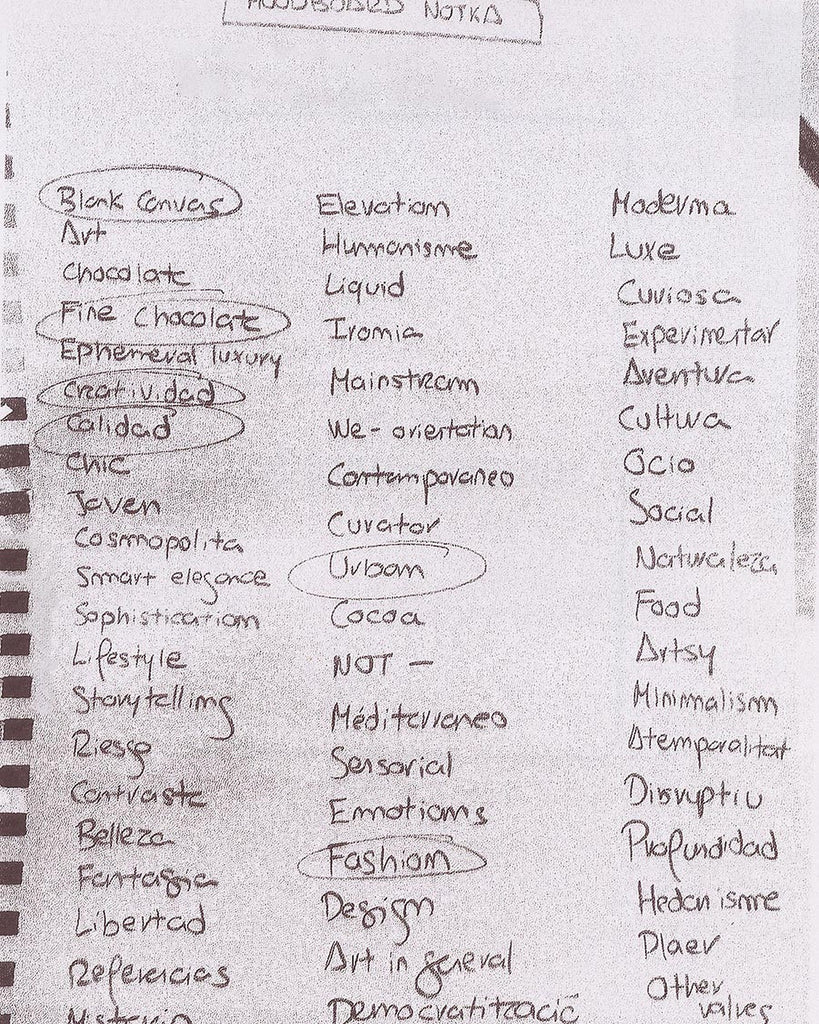 MOODBOARD NOTKA
Blank Canvas
Art
Chocolate
Fine Chocolate
Ephemeral luxury
Creatividad
Calidad
Chic
Joven
Cosmopolita
Smart elegance
Sophistication
Lifestyle
Storytelling
Riesgo
Contraste
Belleza
Fantasia
Libertad
Referencias
Misterio
Elevation
Humanisme
Liquid
Ironia
Mainstream
We-orientation
Contemporaneo
Curator
Urban
Cocoa
NOT —
Méditerraneo
Sensorial
Emotions
Fashion
Design
Art in general
Democratització
Moderna
Luxe
Curiosa
Experimentar
Aventura
Cultura
Ocio
Social
Naturaleza
Food
Artsy
Minimalism
Atemporalitat
Disruptiu
Profundidad
Hedonisme
Plaer
Other
values